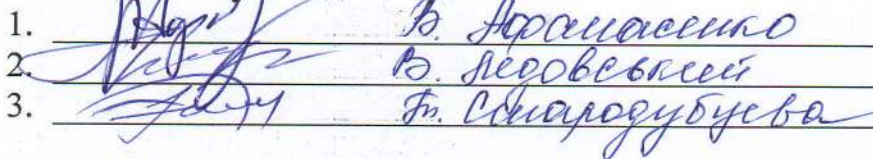 1. В. Афанасенко
2. В. Лєдовський
3. Т. Стародубцева